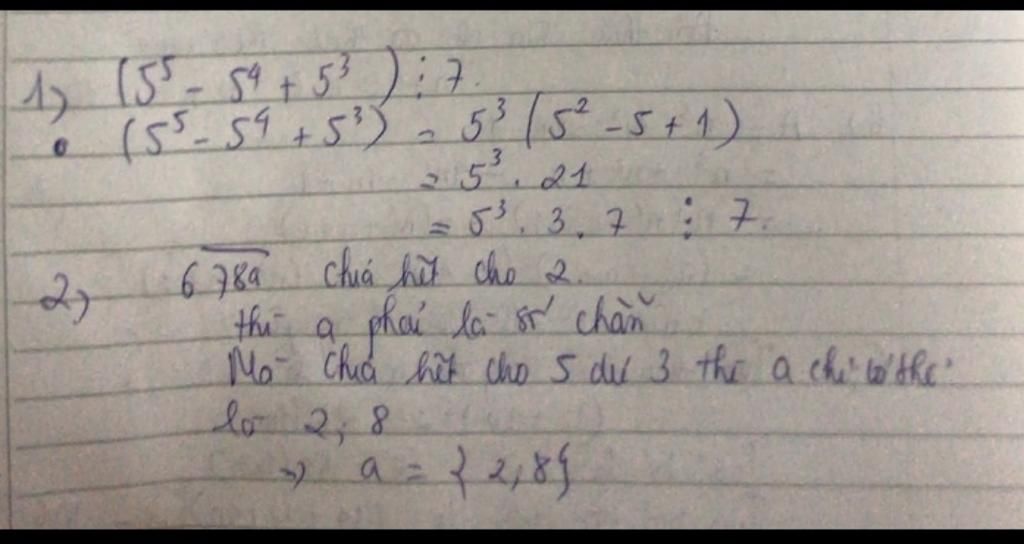 1) (5⁵ - 5⁴ + 5³) ⋮ 7.
• (5⁵ - 5⁴ + 5³) = 5³ (5² - 5 + 1)
= 5³ . 21
= 5³ . 3 . 7 ⋮ 7.
2) 678a chia hết cho 2.
thì a phải là số chẵn
Mà chia hết cho 5 dư 3 thì a chỉ có thể
là 2; 8
=> a = {2, 8}